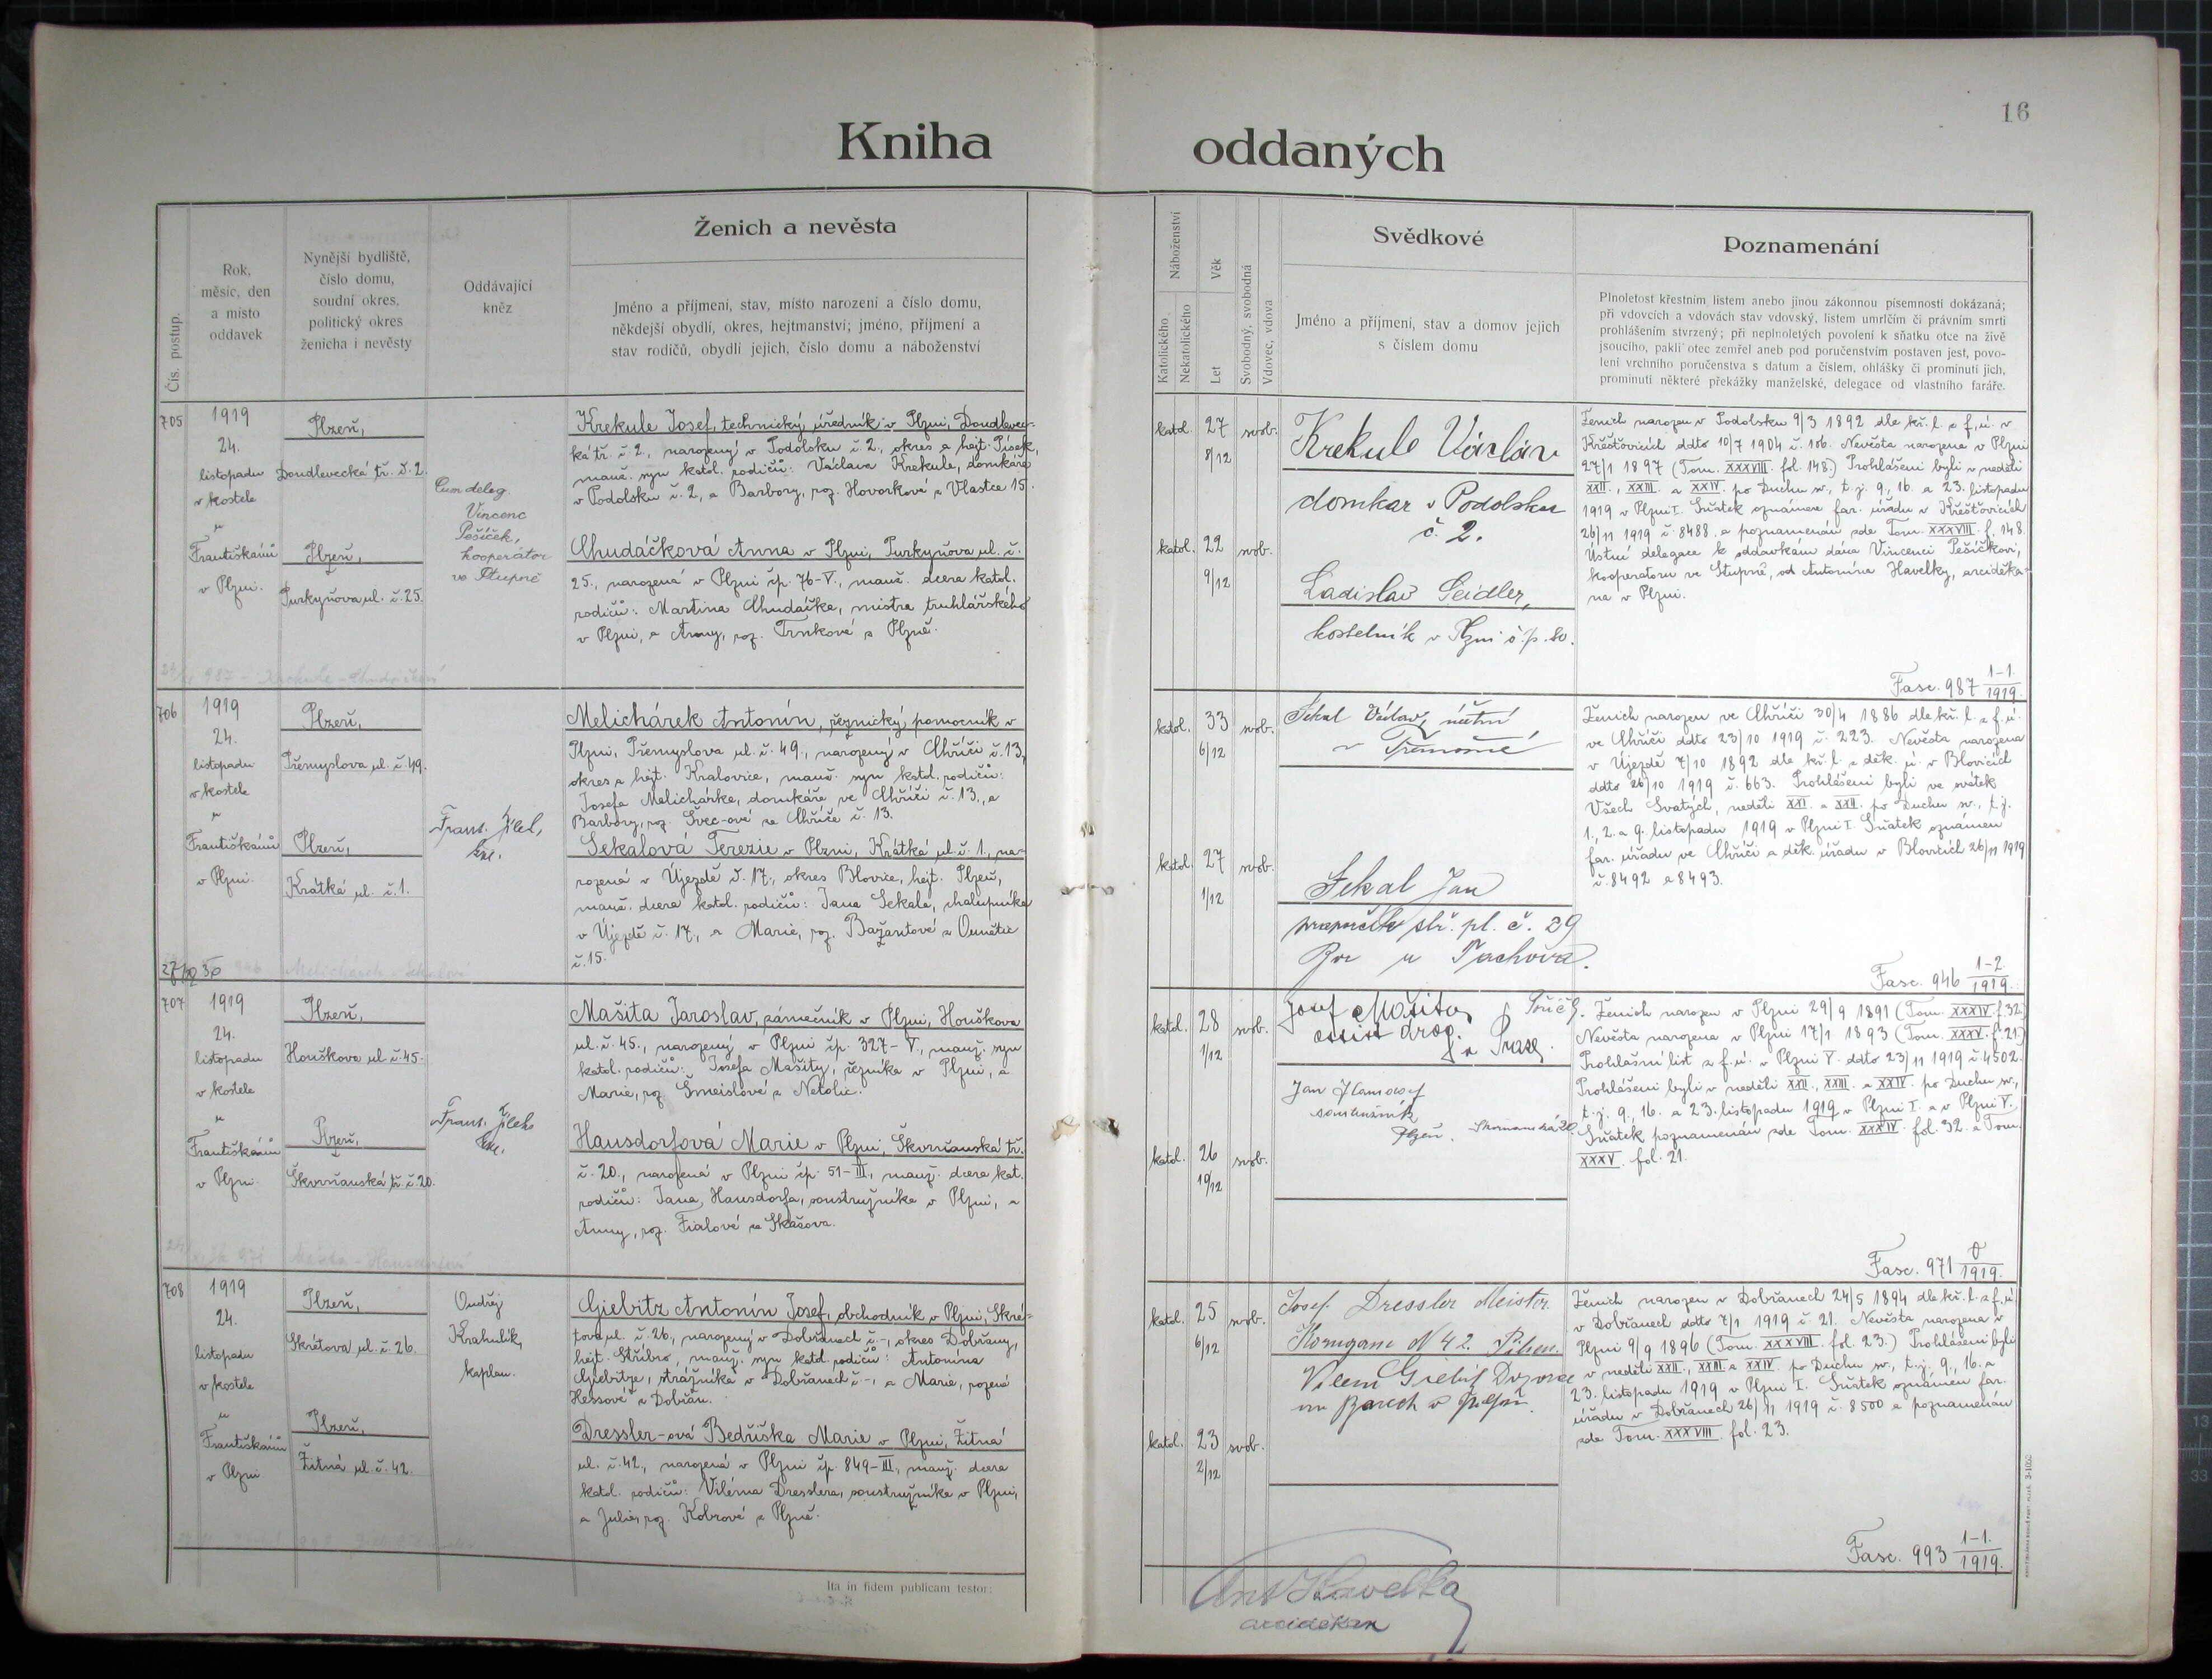 16
Kniha oddaných
Čís. postup.
Rok,
měsíc, den
a místo
oddavek
Nynější bydliště,
číslo domu,
soudní okres,
politický okres
ženicha i nevěsty
Oddávající
kněz
Ženich a nevěsta
Jméno a příjmení, stav, místo narození a číslo domu,
někdejší obydlí, okres, hejtmanství; jméno, příjmení a
stav rodičů, obydlí jejich, číslo domu a náboženství
Náboženství
Katolického
Nekatolického
Věk
Let
Svobodný, svobodná
Vdovec, vdova
Svědkové
Jméno a příjmení, stav a domov jejich
s číslem domu
Poznamenání
Plnoletost křestním listem anebo jinou zákonnou písemností dokázaná;
při vdovcích a vdovách stav vdovský, listem umrlčím či právním smrti
prohlášením stvrzený; při neplnoletých povolení k sňatku otce na živě
jsoucího, paklí otec zemřel aneb pod poručenstvím postaven jest, povo-
lení vrchního poručenstva s datum a číslem, ohlášky či prominutí jich,
prominutí některé překážky manželské, delegace od vlastního faráře.
705
1919
24.
listopadu
v kostele
u
Františkánů
v Plzni.
Plzeň,
Doudlevecká tř. č. 2.
Plzeň,
Purkyňova ul. č. 25.
Cum deleg.
Vincenc
Pešíček,
kooperátor
ve Stupně
Krekule Josef, technický úředník v Plzni, Doudlevec-
ká tř. č. 2., narozený v Podolsku č. 2., okres a hejt. Písek,
manž. syn katol. rodičů: Václava Krekule, domkáře
v Podolsku č. 2, a Barbory, roz. Hovorkové z Vlastce 15.
Chudáčková Anna v Plzni, Purkyňova ul. č.
25., narozená v Plzni čp. 76-V., manž. dcera katol.
rodičů: Martina Chudáčka, mistra truhlářského
v Plzni, a Anny, roz. Trnkové z Plzně.
katol. 27 8/12 svob.
katol. 22 9/12 svob.
Krekule Václav
domkar v Podolsku
č. 2.
Ladislav Seidler,
kostelník v Plzni č. p. 80.
Ženich narozen v Podolsku 9/3 1892 dle kř. l. z f. ú. v
Křešťovicích ddto 10/7 1904 č. 106. Nevěsta narozena v Plzni
27/1 1897 (Tom. XXXVIII. fol. 148.) Prohlášeni byli v neděli
XXII., XXIII. a XXIV. po Duchu sv., t. j. 9., 16. a 23. listopadu
1919 v Plzni I. Sňatek oznámen far. úřadu v Křešťovicích
26/11 1919 č. 8488. a poznamenán zde Tom. XXXVIII. f. 148.
Ústní delegace k oddavkám dána Vincenci Pešíčkovi,
kooperatoru ve Stupně, od Antonína Havelky, arciděka-
na v Plzni.
Fasc. 987 1-1./1919.
706
1919
24.
listopadu
v kostele
u
Františkánů
v Plzni.
Plzeň,
Přemyslova ul. č. 49.
Plzeň,
Krátká ul. č. 1.
Melichárek Antonín, řeznický pomocník v
Plzni, Přemyslova ul. č. 49., narozený v Chříči č. 13,
okres a hejt. Kralovice, manž. syn katol. rodičů:
Josefa Melichárka, domkáře ve Chříči č. 13., a
Barbory, roz. Švec-ové ze Chříče č. 13.
Sekalová Terezie v Plzni, Krátká ul. č. 1., na-
rozená v Újezdě č. 17., okres Blovice, hejt. Plzeň,
manž. dcera katol. rodičů: Jana Sekala, chalupníka
v Újezdě č. 17., a Marie, roz. Bažantové z
č. 15.
katol. 33 6/12 svob.
katol. 27 1/12 svob.
Sekal Václav, účetní
v Třemošné
Sekal Jan
č. 29
u Tachova.
Ženich narozen ve Chříči 30/4 1886 dle kř. l. z f. ú.
ve Chříči ddto 23/10 1919 č. 223. Nevěsta narozena
v Újezdě 7/10 1892 dle kř. l. z děk. ú. v Blovicích
ddto 26/10 1919 č. 663. Prohlášeni byli ve svátek
Všech Svatých, neděli XXI. a XXII. po Duchu sv., t. j.
1., 2. a 9. listopadu 1919 v Plzni I. Sňatek oznámen
far. úřadu ve Chříči a děk. úřadu v Blovicích 26/11 1919
č. 8492 a 8493.
Fasc. 946 1-2/1919.
707
1919
24.
listopadu
v kostele
u
Františkánů
v Plzni.
Plzeň,
Houškova ul. č. 45.
Plzeň,
Škvrňanská tř. č. 20.
Mašita Jaroslav, zámečník v Plzni, Houškova
ul. č. 45., narozený v Plzni čp. 327-V., manž. syn
katol. rodičů: Josefa Mašity, řezníka v Plzni, a
Marie, roz. Šmeislové z Netolic.
Hausdorfová Marie v Plzni, Škvrňanská tř.
č. 20., narozená v Plzni čp. 51-III., manž. dcera kat.
rodičů: Jana Hausdorfa, soustružníka v Plzni, a
Anny, roz. Fialové ze Skašova.
katol. 28 1/12 svob.
katol. 26 10/12 svob.
Josef Mašita
assist drog.
Jan
soustružník
Plzeň.
Ženich narozen v Plzni 29/9 1891 (Tom. XXXIV. f. 32)
Nevěsta narozena v Plzni 17/1 1893 (Tom. XXXV. f. 21)
Prohlašní list z f. ú. v Plzni V. ddto 23/11 1919 č. 4502.
Prohlášeni byli v neděli XXII., XXIII. a XXIV. po Duchu sv.,
t. j. 9., 16. a 23. listopadu 1919 v Plzni I. a v Plzni V.
Sňatek poznamenán zde Tom. XXXIV. fol. 32. a Tom.
XXXV. fol. 21.
Fasc. 971 0/1919.
708
1919
24.
listopadu
v kostele
u
Františkánů
v Plzni
Plzeň,
Skrétova ul. č. 26.
Plzeň,
Žitná ul. č. 42.
Ondřej
Krahulík,
kaplan.
Giebitz Antonín Josef, obchodník v Plzni, Skré-
tova ul. č. 26., narozený v Dobřanech č. -, okres Dobřany,
hejt. Stříbro, manž. syn katol. rodičů: Antonína
Giebitze, strážníka v Dobřanech č. -, a Marie, rozené
Hessové z Dobřan.
Dressler-ová Bedřiška Marie v Plzni, Žitná
ul. č. 42., narozená v Plzni čp. 849-III., manž. dcera
katol. rodičů: Viléma Dresslera, soustružníka v Plzni,
a Julie, roz. Kobrové z Plzně.
katol. 25 6/12 svob.
katol. 23 2/12 svob.
Josef Dressler Meister
N 42 Pilsen.
Ženich narozen v Dobřanech 24/5 1894 dle kř. l. z f. ú.
v Dobřanech ddto 7/1 1919 č. 21. Nevěsta narozena v
Plzni 9/9 1896 (Tom. XXXVIII. fol. 23.) Prohlášeni byli
v neděli XXII., XXIII. a XXIV. po Duchu sv., t. j. 9., 16. a
23. listopadu 1919 v Plzni I. Sňatek oznámen far.
úřadu v Dobřanech 26/11 1919 č. 8500 a poznamenán
zde Tom. XXXVIII. fol. 23.
Fasc. 993 1-1./1919.
Ita in fidem publicam testor:
Ant Havelka
arciděkan